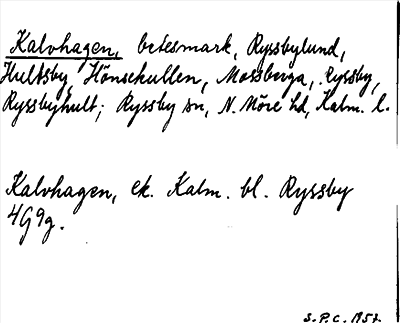 Kalvhagen, betesmark, Ryssbylund,
Hultsby, Hönsekullen, Mossberga, Ryssby,
Ryssbyhult; Ryssby sn, N. Möre hd, Kalm. l.
Kalvhagen, ek. Kalm. bl. Ryssby
4G9g.
S.P.C. 1957.